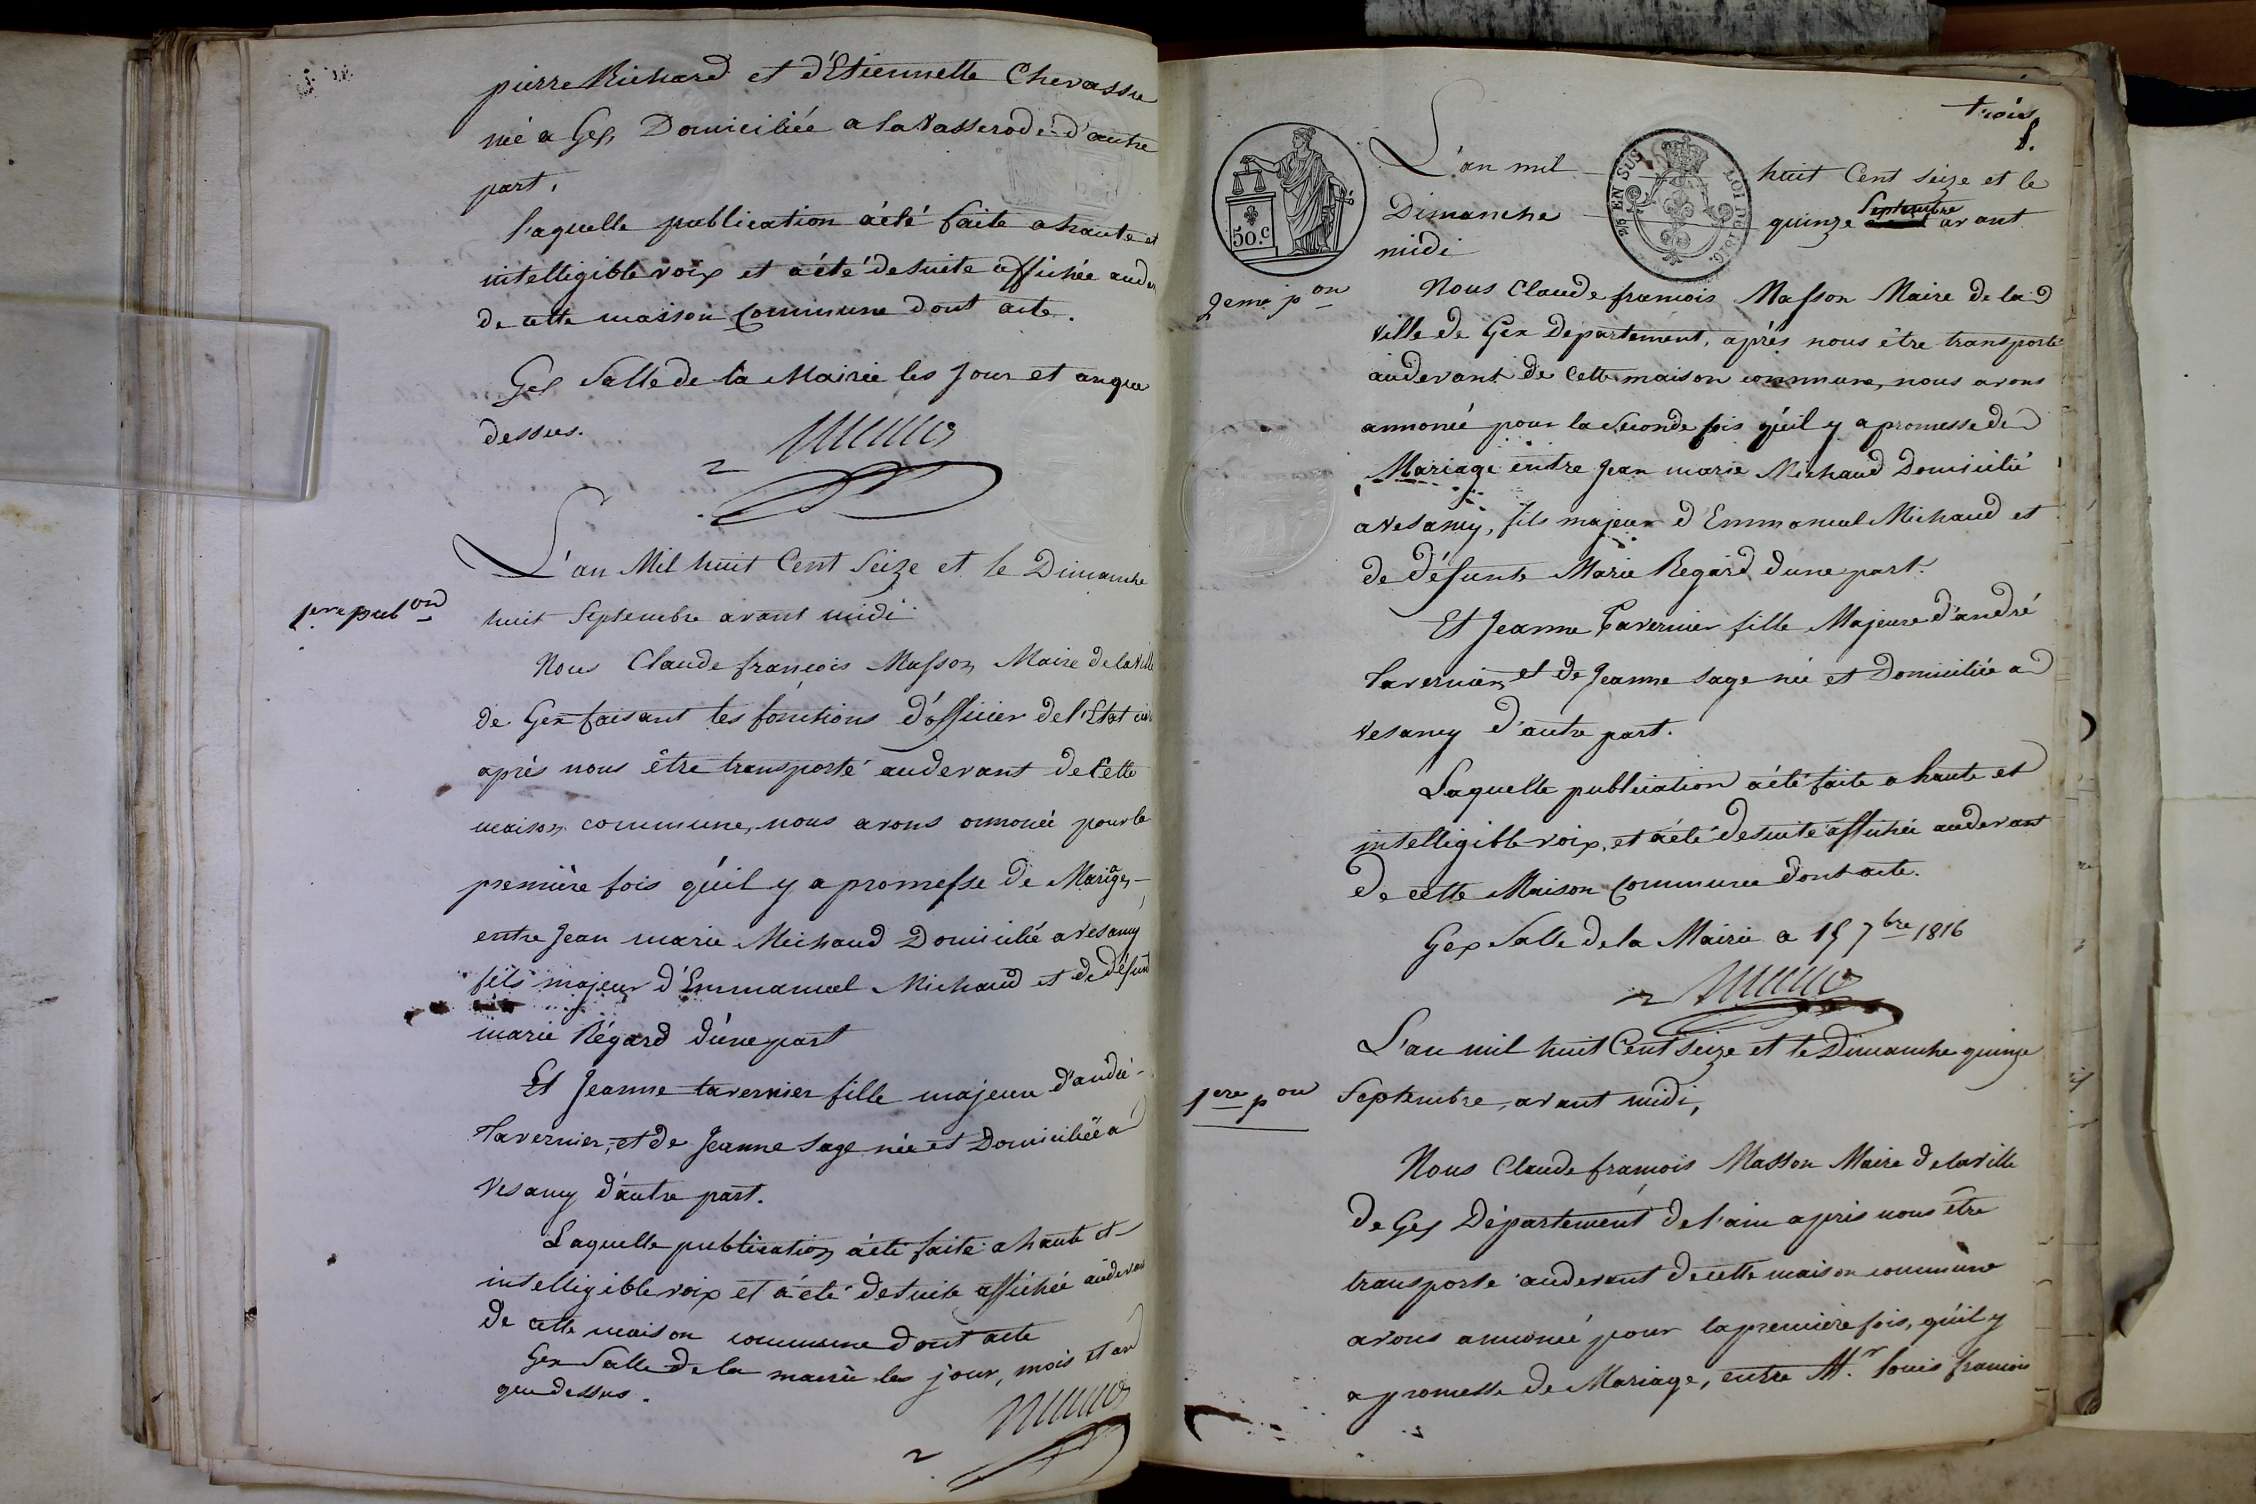 pierre Richard et d'Etiennette Chevassu
née a Gex Domiciliée a la Vasserode d'autre
part.
Laquelle publication à été faite a haute et
intelligible voix et à été de suite affichée audev
de cette maison commune dont acte.
Gex Salle de la Mairie les Jour et an que
dessus.
L'an Mil huit Cent Seize et le Dimanche
1ere pub.on
huit Septembre avant midi
Nous Claude francois Masson Maire de la Ville
de Gex faisant les fonctions d'officier de l'Etat civil
après nous être transporté audevant de Cette
maison commune, nous avons annoncé pour la
première fois qu'il y a promesse de Mariage,
entre Jean marie Michaud Domicilié a Vesancy
fils majeur d'Emmanuel Michaud et de défunte
marie Régard d'une part
Et Jeanne tavernier fille majeure d'andré
Tavernier, et de Jeanne Sage née et Domiciliée a
Vesancy d'autre part.
Laquelle publication à été faite a haute et
intelligible voix et à été de suite affichée audevan
de cette maison commune dont acte
Gex Salle de la mairie les jour, mois et an
que dessus.
trois
8.
L'an mil huit Cent Seize et le
Dimanche quinze Septembre avant
midi
50.c
2/6 EN SUS LOI DE 1816.
2eme p.on
Nous Claude francois Masson Maire de la
Ville de Gex Departement, après nous être transporté
audevant de Cette maison commune, nous avons
annoncé pour la Seconde fois qu'il y a promesse de
Mariage entre Jean marie Michaud Domicilié
a Vesancy, fils majeur d'Emmanuel Michaud et
de défunte Marie Regard d'une part.
Et Jeanne Tavernier fille Majeure d'andré
Tavernier et de Jeanne Sage née et Domiciliée a
Vesancy d'autre part.
Laquelle publication à été faite a haute et
intelligible voix, et à été de suite affichée audevant
de cette Maison Commune dont acte.
Gex Salle de la Mairie a 15 7bre 1816
L'an mil huit Cent Seize et le Dimanche quinze
1ere p.on
Septembre, avant midi,
Nous Claude francois Masson Maire de la Ville
de Gex Département de l'ain après nous être
transporté audevant de cette maison commune
avons annoncé pour la première fois, qu'il y
a promesse de Mariage, entre Mr. louis francois